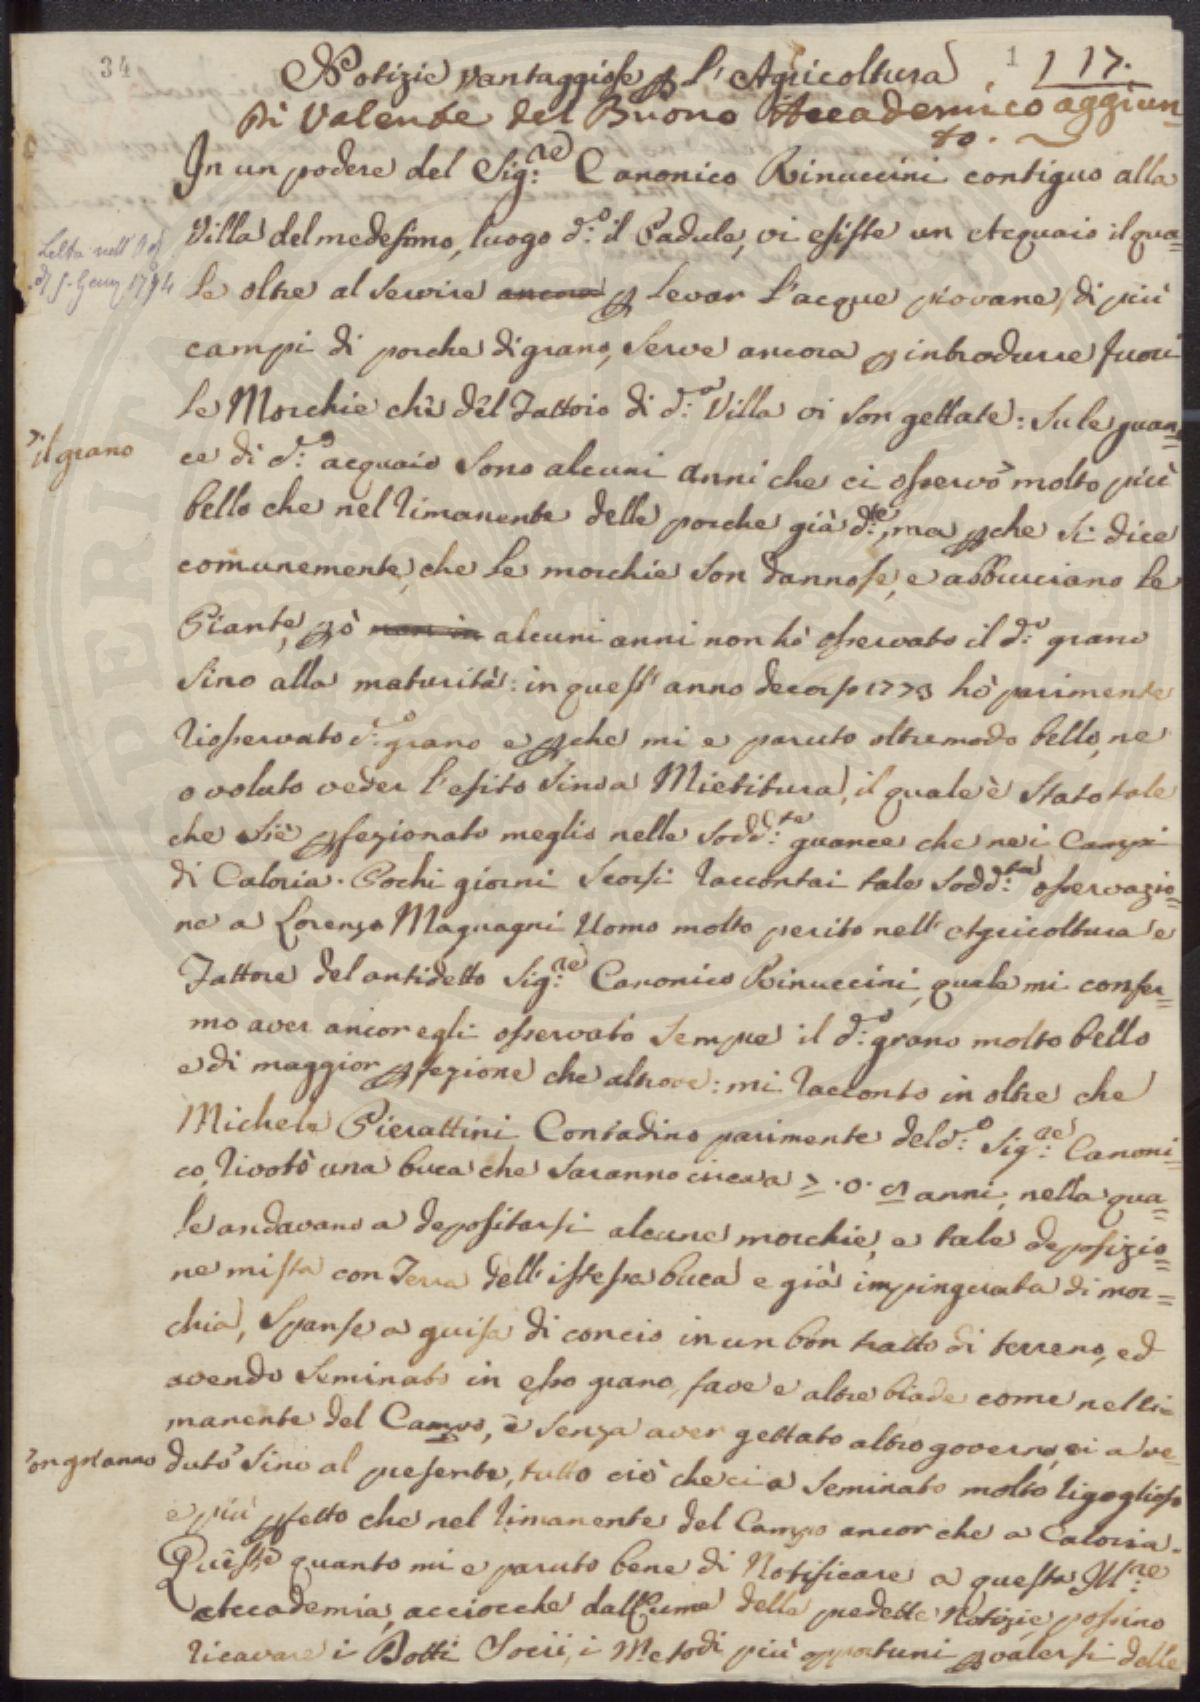 34
1
117.
Notizie vantaggiose p l'Agricoltura
Di Valente del Buono Accademico aggiun=
to.
In un podere del Sig:re Canonico Rinuccini contiguo alla
Villa del medesimo, luogo d:o il Padule, vi esiste un Acquaio il qua=
Letta nell' Ad
di 5. Genn 1774
le oltre al servire ancora p levar l'acque piovane, di più
campi di porche di grano, serve ancora p introdurre fuori
le Morchie che dèl Fattoio di d:a Villa vi son gettate: Su le guan=
il grano
ce di d:o acquaio sono alcuni anni che ci osservò molto più
bello che nel rimanente delle porche già d:te, ma pche si dice
comunemente, che le morchie son dannose, e abbruciano le
Piante, pò non in alcuni anni non hò osservato il d:o grano
sino alla maturità: in quest' anno decorso 1773 hò parimente
riosservato d:o grano e pche mi e paruto oltremodo bello, ne
o voluto veder l'esito sino a Mietitura, il quale è stato tale
che si è pfezionato meglio nelle sodd:te guance che nei Campi
di Caloria. Pochi giorni scorsi raccontai tale sodd:ta osservazio=
ne a Lorenzo Magnagni Uomo molto perito nell' Agricoltura e
Fattore del antidetto Sig:re Canonico Rinuccini, quale mi confer=
mo aver ancor egli osservato sempre il d:o grano molto bello
e di maggior pfezione che altrove: mi racconto in oltre che
Michele Pierattini Contadino parimente del d:o Sig:re Canoni=
co, rivotò una buca che saranno circa a 7. o. 8 anni, nella qua=
le andavano a depositarsi alcune morchie, e tale deposizio=
ne mista con Terra dell' istessa buca e già impinguata di mor=
chia, spanse a guisa di concio in un bon tratto di terreno, ed
avendo seminato in esso grano, fave e altre biade come nel ri=
manente del Campo, e senza aver gettato altro governo, ci a ve=
ogn'anno
duto sino al presente, tutto ciò che ci a seminato molto rigoglioso
e più pfetto che nel rimanente del Campo ancor che a Caloria.
Quest'è quanto mi e paruto bene di Notificare a questa Ill:re
Accademia, acciocche dall'Lume delle predette Notizie, possino
ricavare i Dotti Socii, i Metodi più opportuni p valersi delle